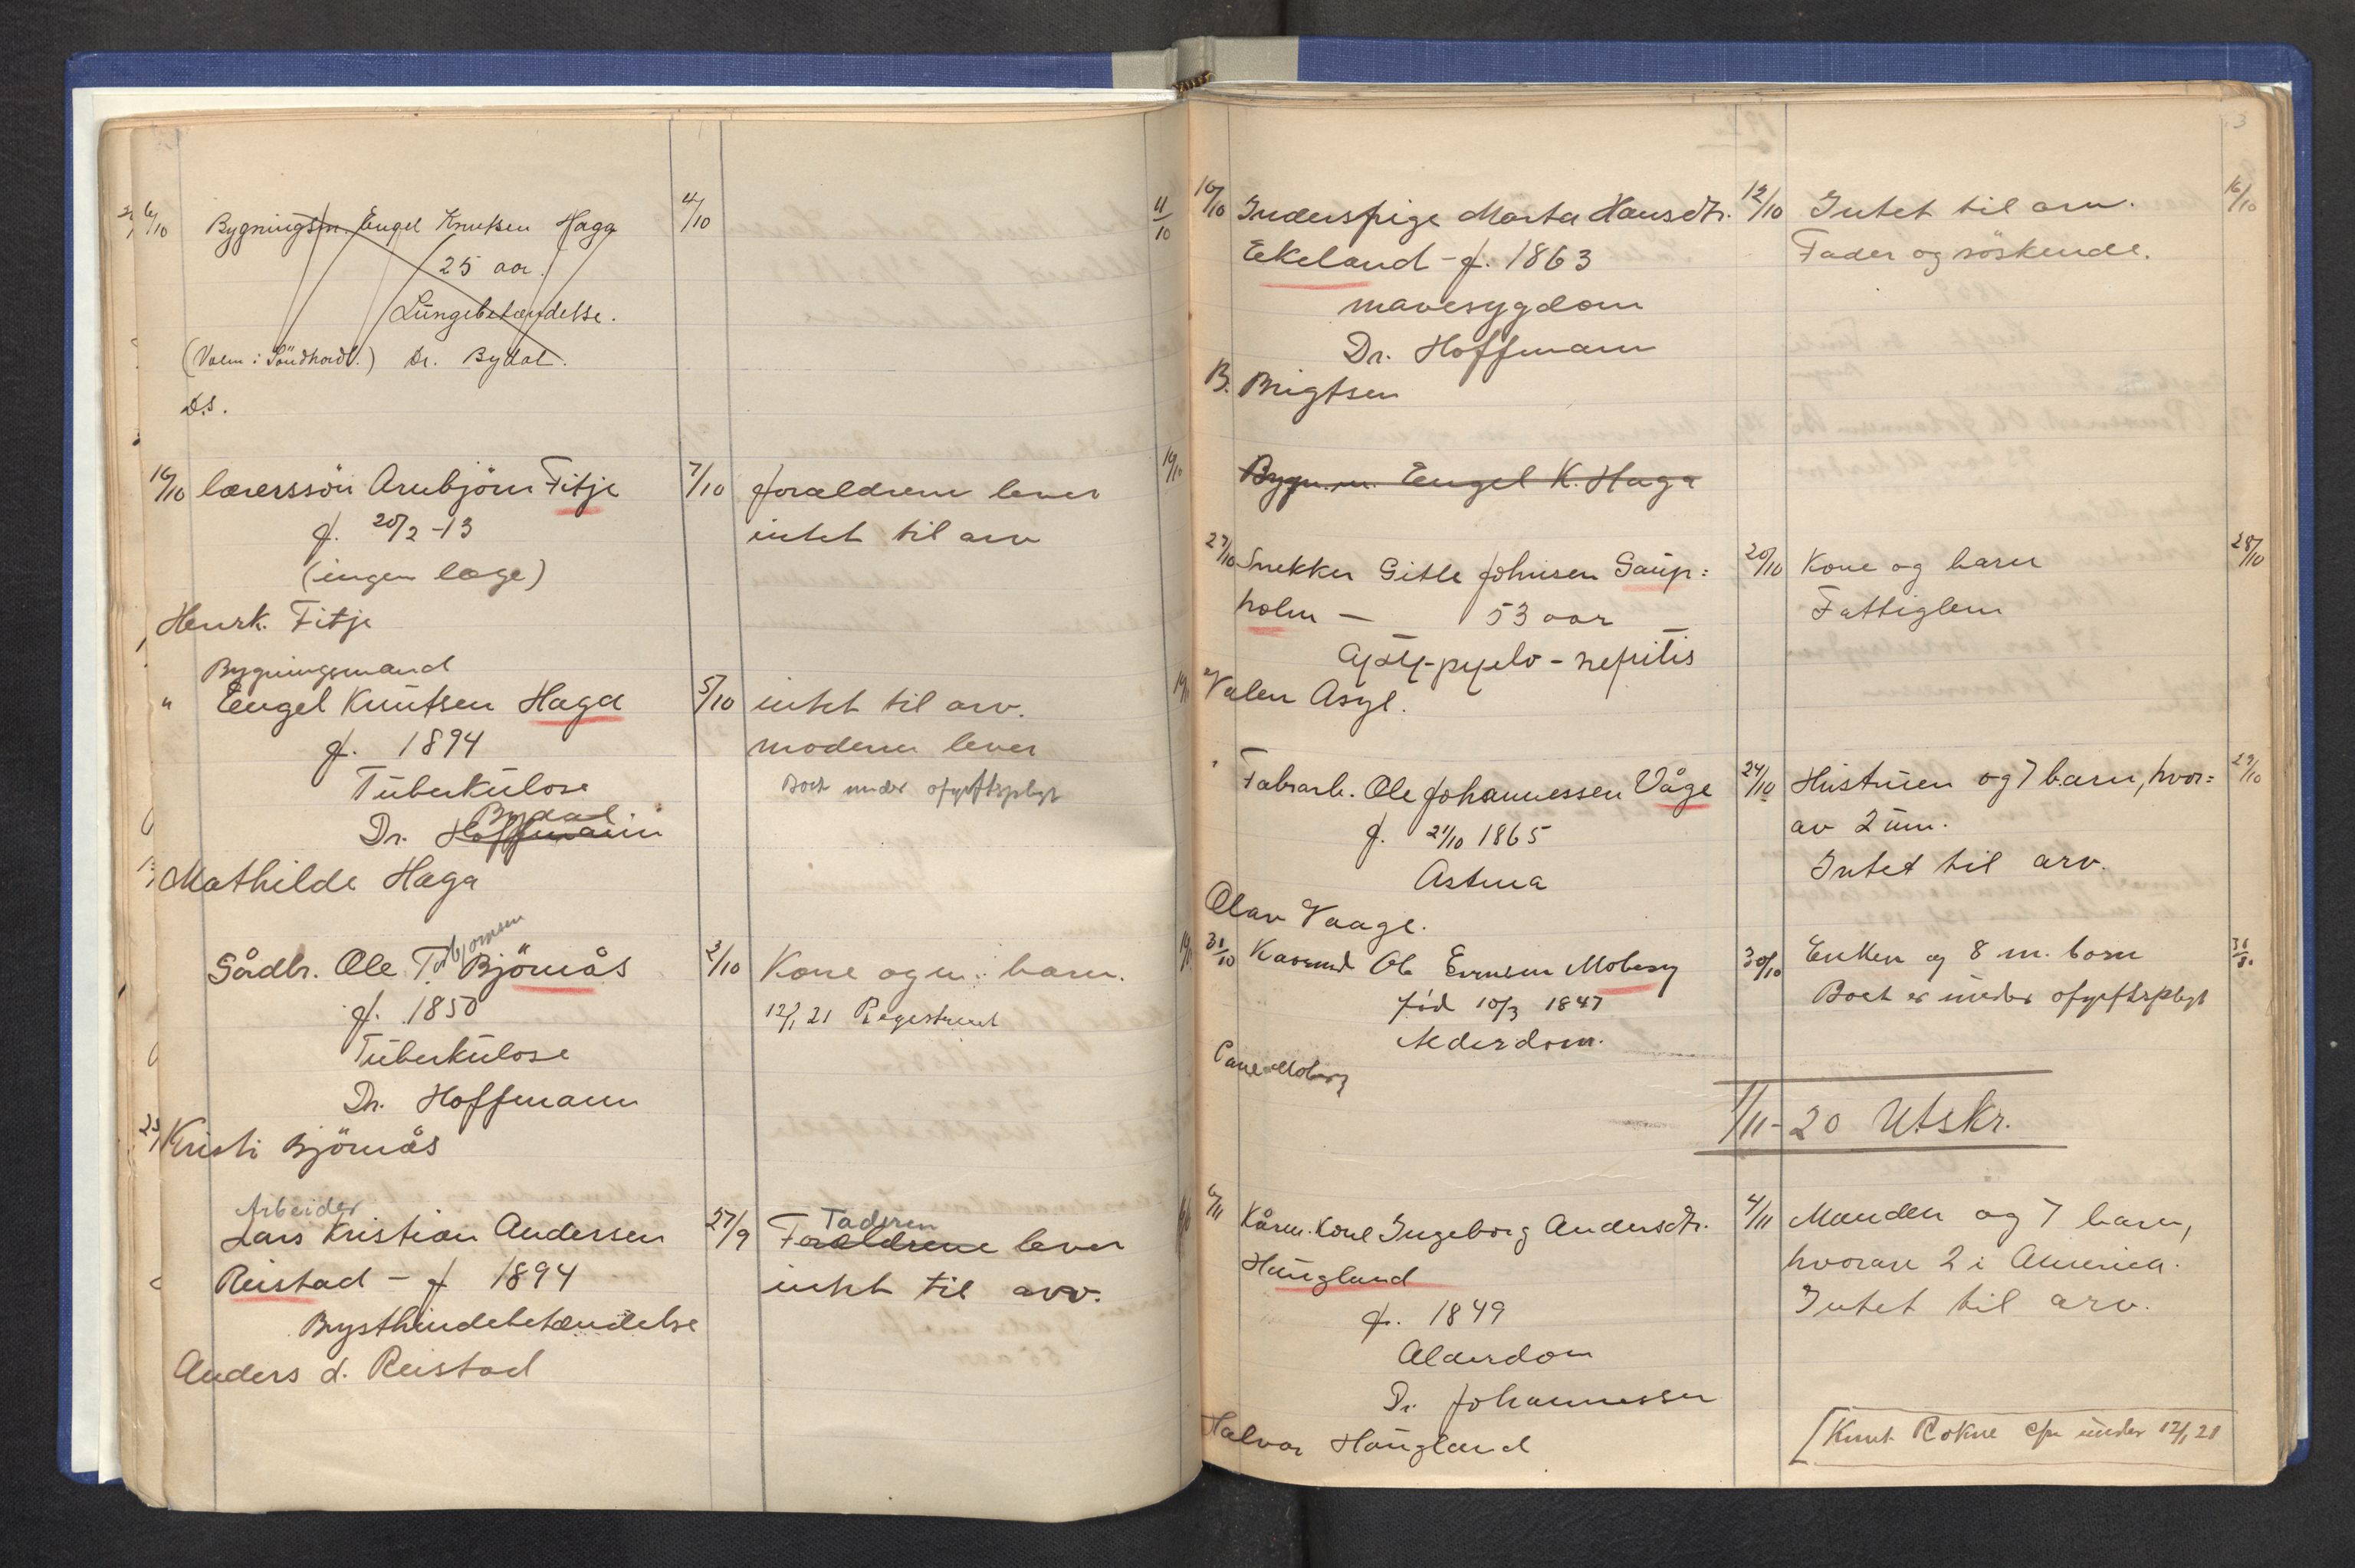 6/10 Bygningsm. Engel Knutsen Haga 4/10 11/10
25 aar.
Lungebetændelse.
(Valen i Söndhordl.) Dr. Bydal.
D.S.
10/10 lærerssön Arnbjörn Fitje 7/10 forældrene lever 19/10
f. 20/2 -13 intet til arv
(ingen læge)
Henrk. Fitje
Bygningsmand
" Engel Knutsen Haga 5/10 intet til arv.
f. 1894 moderen lever
Tuberkulose Boet under ofgiftspligt
Bydal.
Dr. Hoffmann
Mathilde Haga
Torbjornsen
Gårdbr. Ole T. Björnås 2/10 Kone og m. barn.
f. 1850 12/1 21 Registreret
Tuberkulose
Dr. Hoffmann
Kristi Björnås
Arbeider Faderen
Lars Kristian Andersen 27/9 Forældrene lever
Reistad - f 1894 intet til arv.
Brysthindebetændelse
Anders d. Reistad
16/10 Inderspige Marta Hansdtr. 12/10 Intet til arv. 16/10
Ekeland - f. 1863 Fader og söskende.
mavesygdom
Dr. Hoffmann
B. Brigtsen
Bygn.m. Engel K. Haga
27/10 Snekker Gitle Johnsen Gaup= 20/10 Kone og barn 28/10
holm — 53 aar — Fattiglem
Cysty-pyelo-nefritis
Valen Asyl.
" Fabrarb. Ole Johannessen Våge 24/10 Hustruen og 7 barn, hvor= 29/10
f. 21/10 1865 av 2 um.
Astma Intet til arv.
Olav Vaage.
31/10 Kaarmd Ole Evensen Moberg 30/10 Enken og 8 m. born
fød 10/3 1847 Boet er under ofgiftspligt
Alderdom.
Moberg
1/11 - 20 Utskr.
6/11 Kårm. Kone Ingeborg Andersdtr. 4/11 Manden og 7 barn,
Haugland hvorav 2 i America.
f. 1849 Intet til arv.
Alderdom
Dr. Johannessen
Halvor Haugland
[Knut Rokne cfr under 12/1 21